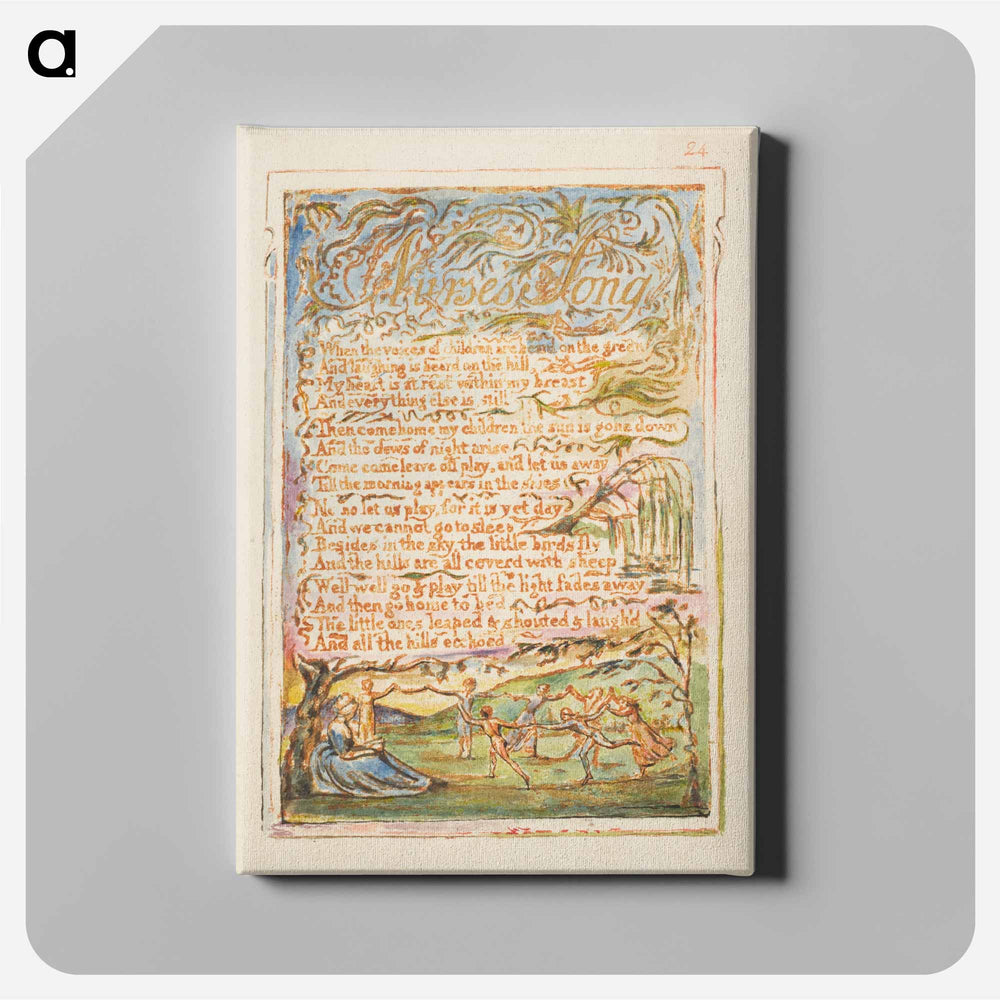 a.
24
Nurses Song
When the voices of children are heard on the green
And laughing is heard on the hill,
My heart is at rest within my breast
And every thing else is still
Then come home my children the sun is gone down
And the dews of night arise
Come come leave off play, and let us away
Till the morning appears in the skies
No no let us play, for it is yet day
And we cannot go to sleep
Besides in the sky, the little birds fly
And the hills are all coverd with sheep
Well well go & play till the light fades away
And then go home to bed
The little ones leaped & shouted & laugh'd
And all the hills ecchoed